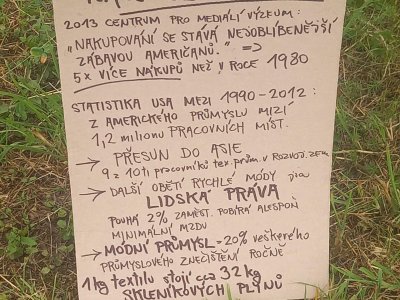 2013 CENTRUM PRO MEDIÁLÍ VÝZKUM:
„NAKUPOVÁNÍ SE STAVÁ NEJOBLÍBENĚJŠÍ
ZÁBAVOU AMERIČANŮ." =>
5x VÍCE NÁKUPŮ NEŽ V ROCE 1980
STATISTIKA USA MEZI 1990-2012:
Z AMERICKÉHO PRŮMYSLU MIZÍ
1,2 milionu PRACOVNÍCH MÍST.
→ PŘESUN DO ASIE
9 z 10ti pracovníků tex. prům. v ROZVOJ. ZEM
→ DALŠÍ OBĚTÍ RYCHLÉ MÓDY jsou
LIDSKÁ PRÁVA
POUHÁ 2% ZAMĚST. POBÍRÁ ALESPOŇ
MINIMÁLNÍ MZDU
→ MÓDNÍ PRŮMYSL = 20% veškerého
PRŮMYSLOVÉHO ZNEČIŠTĚNÍ ROČNĚ
1kg textilu stojí cca 32 kg
SKLENÍKOVÝCH PLYNŮ